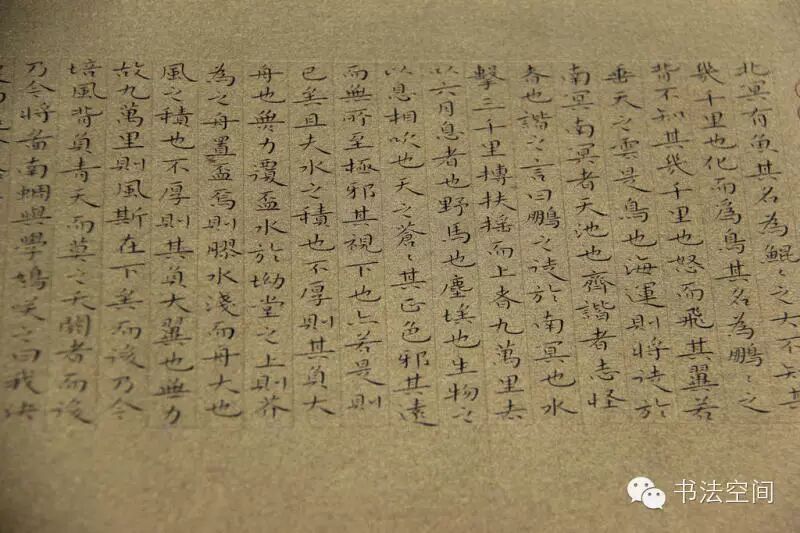 北冥有魚其名為鯤〻之大不知其
幾千里也化而為鳥其名為鵬〻之
背不知其幾千里也怒而飛其翼若
垂天之雲是鳥也海運則將徒於
南冥南冥者天池也齊諧者志怪
者也諧之言曰鵬之徒於南冥也水
擊三千里摶扶搖而上者九萬里去
以六月息者也野馬也塵埃也生物之
以息相吹也天之蒼〻其正色邪其遠
而無所至極邪其視下也亦若是則
已矣且夫水之積也不厚則其負大
舟也無力覆盃水於坳堂之上則芥
為之舟置盃焉則膠水淺而舟大也
風之積也不厚則其負大翼也無力
故九萬里則風斯在下矣而後乃今
培風背負青天而莫之夭閼者而後
乃今將啚南蜩與學鳩笑之曰我決
书法空间